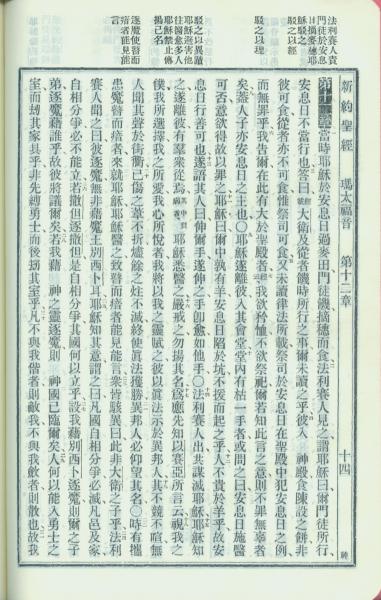 法利賽人責
門徒於安息
日摘麥穗耶
穌駁之
駁之以經
駁之以理
駁之以異蹟
耶穌避害他
往醫愈多人
耶穌禁止傳
揚己名
逐魔使瞽而
瘖者能見能
新約聖經 瑪太福音 第十二章 十四
第十二章 當時耶穌於安息日過麥田門徒饑摘穗而食法利賽人見之謂耶穌曰爾門徒所行、
安息日不當行也答曰大衛及從者饑時所行之事爾未讀之乎彼入 神殿食陳設之餅非
彼可食從者亦不可食惟祭司可食又未讀律法所載祭司於安息日在聖殿中犯安息日之例
而無罪乎我告爾在此有大於聖殿者我欲矜恤不欲祭祀爾若知此言之意則不罪無辜者
矣蓋人子亦安息日之主也○耶穌遂離彼入其會堂堂內有枯一手者或問之曰安息日施醫
可否意欲得故以罪之耶穌曰爾中孰有羊安息日陷於坑不援而起之乎人不貴於羊乎故安
息日行善可也遂語其人曰伸爾手遂伸之手即愈如他手○法利賽人出共謀滅耶穌耶穌知
之遂離彼有羣衆從焉耶穌悉醫之嚴戒之勿揚其名爲應先知以賽亞所言云視我之
僕我所選擇我之所愛我心所悅者我將以我之靈賦之彼以眞法示於異邦人其不競不喧無
人聞其聲於街衢已傷之葦不折燼餘之炷不滅終使眞法獲勝異邦人必仰望其名○時有攜
患魔瞽而瘖者來就耶穌耶穌醫之致瞽而瘖者能見能言衆皆駭異曰此非大衛之子乎法利
賽人聞之曰彼逐魔無非藉魔王別西卜耳耶穌知其意謂之曰凡國自相分爭必滅凡邑及家
自相分爭必不能立若撒但逐撒但是自相分爭其國何以立乎設我藉別西卜逐魔則爾之子
弟逐魔藉誰乎故彼將議爾矣若我藉 神之靈逐魔則 神國已臨爾矣人何以能入勇士之
室而刼其家具乎非先縛勇士而後刼其室乎凡不與我偕者則敵我不與我斂者則散也故我